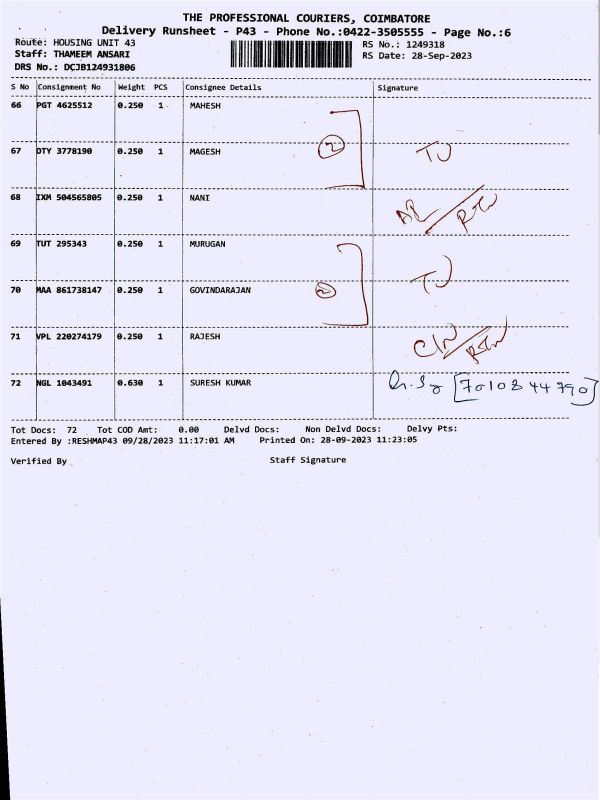 THE PROFESSIONAL COURIERS, COIMBATORE
Delivery Runsheet - P43 - Phone No.:0422-3505555 - Page No.:6
Route: HOUSING UNIT 43 RS No.: 1249318
Staff: THAMEEM ANSARI RS Date: 28-Sep-2023
DRS No.: DCJB124931806
S No Consignment No Weight PCS Consignee Details Signature
66 PGT 4625512 0.250 1 MAHESH
67 DTY 3778190 0.250 1 MAGESH 2 TJ
68 IXM 504565805 0.250 1 NANI
69 TUT 295343 0.250 1 MURUGAN
70 MAA 861738147 0.250 1 GOVINDARAJAN 2 TJ
71 VPL 220274179 0.250 1 RAJESH
72 NGL 1043491 0.630 1 SURESH KUMAR
Tot Docs: 72 Tot COD Amt: 0.00 Delvd Docs: Non Delvd Docs: Delvy Pts:
Entered By :RESHMAP43 09/28/2023 11:17:01 AM Printed On: 28-09-2023 11:23:05
Verified By Staff Signature